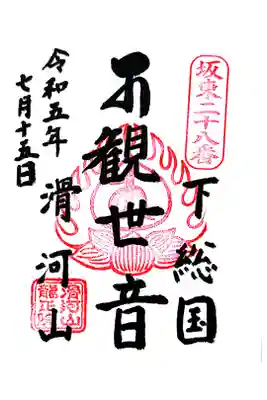 坂東二十八番
下総国
観世音
滑河山
令和五年
七月十五日
滑河山
龍正院